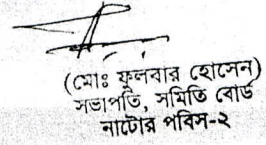 (মোঃ ফুলবার হোসেন)
সভাপতি, সমিতি বোর্ড
নাটোর পবিস-২